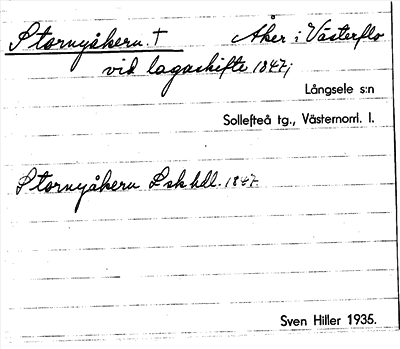 Stornyåkern. † Åker i Västerflo
vid lagaskifte 1847;
Långsele s:n
Sollefteå tg., Västernorrl. l.
Stornyåkern Lskhdl. 1847.
Sven Hiller 1935.